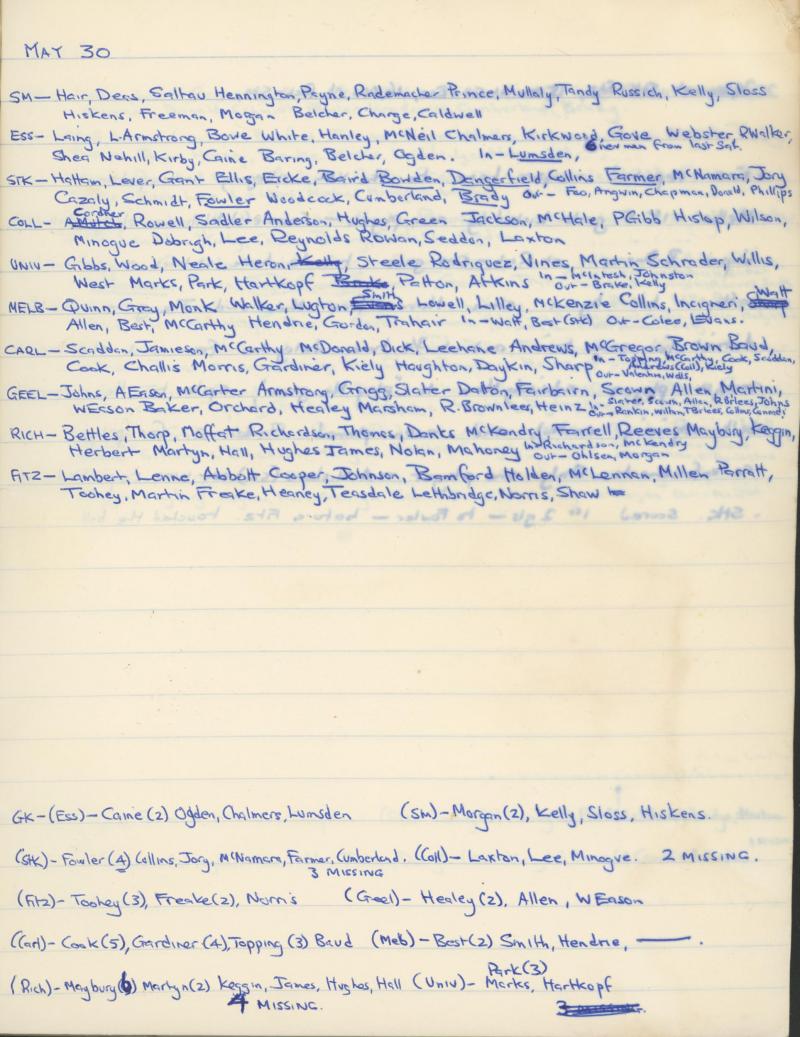 MAY 30
SM— Hair, Deas, Saltau Hennington, Payne, Rademacher Prince, Mullaly, Tandy Russich, Kelly, Sloss
Hiskens, Freeman, Morgan Belcher, Charge, Caldwell
ESS— Laing, L.Armstrong, Bowe White, Hanley, McNeil Chalmers, Kirkwood, Gove, Webster RWalker,
6 new men from last Sat.
Shea Nehill, Kirby, Caine Baring, Belcher, Ogden. In—Lumsden,
STK— Hattam, Lever, Gant Ellis, Eicke, Baird Bowden, Dangerfield, Collins Farmer, McNamara, Jory
Cazaly, Schmidt, Fowler Woodcock, Cumberland, Brady Out— Feo, Angwin, Chapman, Donald, Phillips
Cordner
COLL— AMutch, Rowell, Sadler Anderson, Hughes, Green Jackson, McHale, PGibb Hislop, Wilson,
Minogue Dobrigh, Lee, Reynolds Rowan, Seddon, Laxton
UNIV— Gibbs, Wood, Neale Heron, Kelly, Steele Rodriquez, Vines, Martin Schrader, Willis,
West Marks, Park, Hartkopf Brake, Patton, Atkins In—McIntosh, Johnston
Out—Brake, Kelly
Smith Watt
MELB— Quinn, Gray, Monk Walker, Lugton, Evans Lowell, Lilley, McKenzie Collins, Incigneri,
Allen, Best, McCarthy Hendrie, Gordon, Trahair In—Watt, Best(Stk) Out—Colee, Evans.
CARL— Scaddan, Jamieson, McCarthy McDonald, Dick, Leehane Andrews, McGregor Brown Baud,
Cook, Challis Morris, Gardiner, Kiely Haughton, Daykin, Sharp In—Topping, McCarthy, Cook, Scaddan,
Andrews(Coll), Kiely
Out—Valentine, Wells
GEEL—Johns, AEason, McCarter Armstrong, Grigg, Slater Daton, Fairbairn, Scown Allen, Martini,
WEason Baker, Orchard, Healey Marsham, R.Brownlees, Heinz In—Slater, Scown, Allen, R.Brlees, Johns
Out—Rankin, Willm, TBrlees, Collins,
RICH— Bettles, Thorp, Moffat Richardson, Thomas, Danks McKendry, Farrell Reeves Maybury, Keggin,
Herbert Martyn, Hall, Hughes James, Nolan, Mahoney In—Richardson, McKendry
Out—Ohlsen, Morgan
FITZ— Lambert, Lenne, Abbott Cooper, Johnson, Bamford Holden, McLennan, Millen Parratt,
Toohey, Martin Freake, Heaney, Teasdale Lethbridge, Norris, Shaw
GK—(Ess)— Caine(2) Ogden, Chalmers, Lumsden (SM)—Morgan(2), Kelly, Sloss, Hiskens.
(Stk)— Fowler(4) Collins, Jory, McNamara, Farmer, Cumberland. (Coll)— Laxton, Lee, Minogue. 2 MISSING.
3 MISSING
(Fitz)— Toohey(3), Freake(2), Norris (Geel)— Healey(2), Allen, WEason
(Carl)— Cook(5), Gardiner(4), Topping(3) Baud (Melb)—Best(2) Smith, Hendrie, ——.
Park(3)
(Rich)— Maybury(6) Martyn(2) Keggin, James, Hughes, Hall (Univ)— Marks, Hartkopf
4 MISSING.